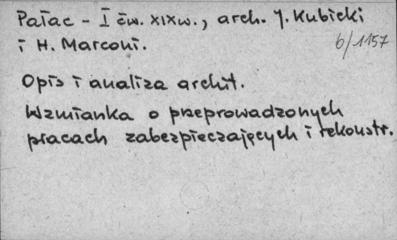 Pałac - I ćw. XIX w., arch. J. Kubicki
i H. Marconi.
6/1157
Opis i analiza archit.
Wzmianka o przeprowadzonych
pracach zabezpieczających i rekonstr.